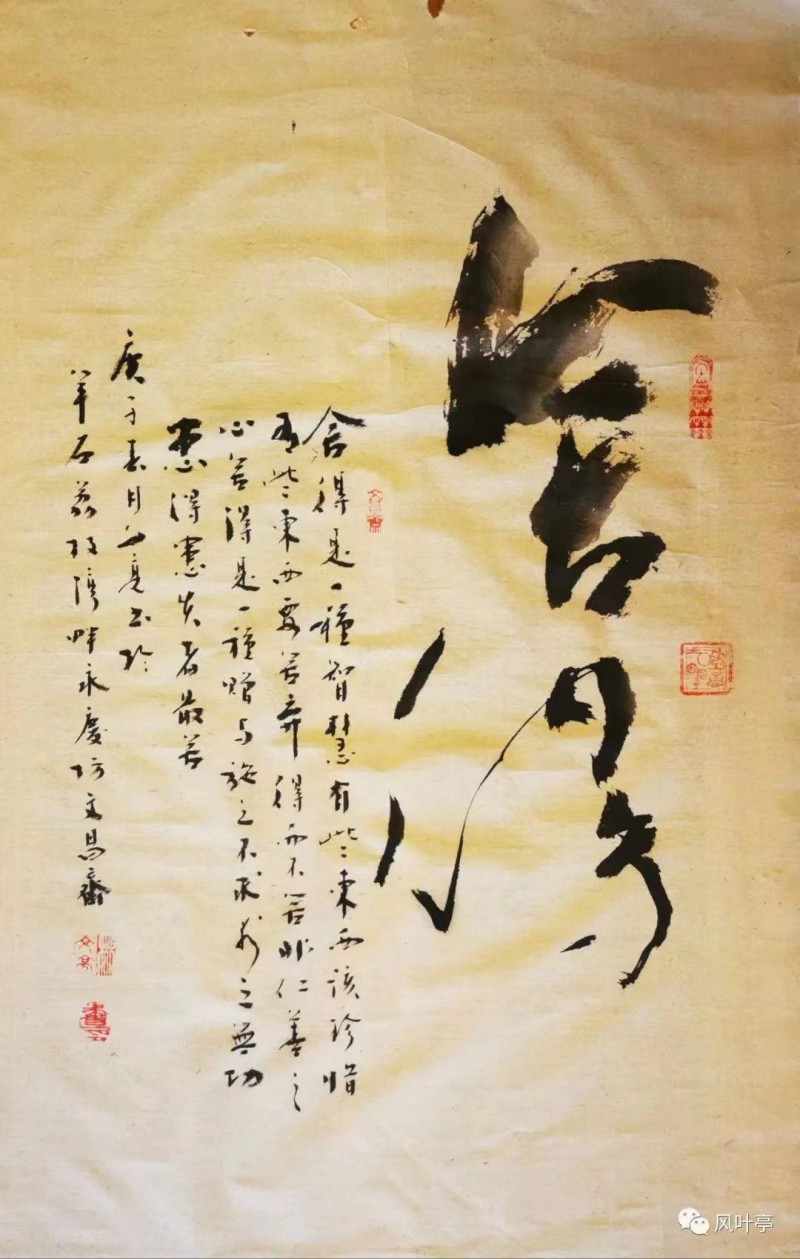 舍得
舍得是一種智慧有些東西該珍惜
有些東西要舍弃得而不舍非仁善之
心舍得是一種贈与施之不求利之無功
患得患失者最苦
庚子春月文亮书於
羊石荔枝湾畔永慶坊文昌齋
风叶亭